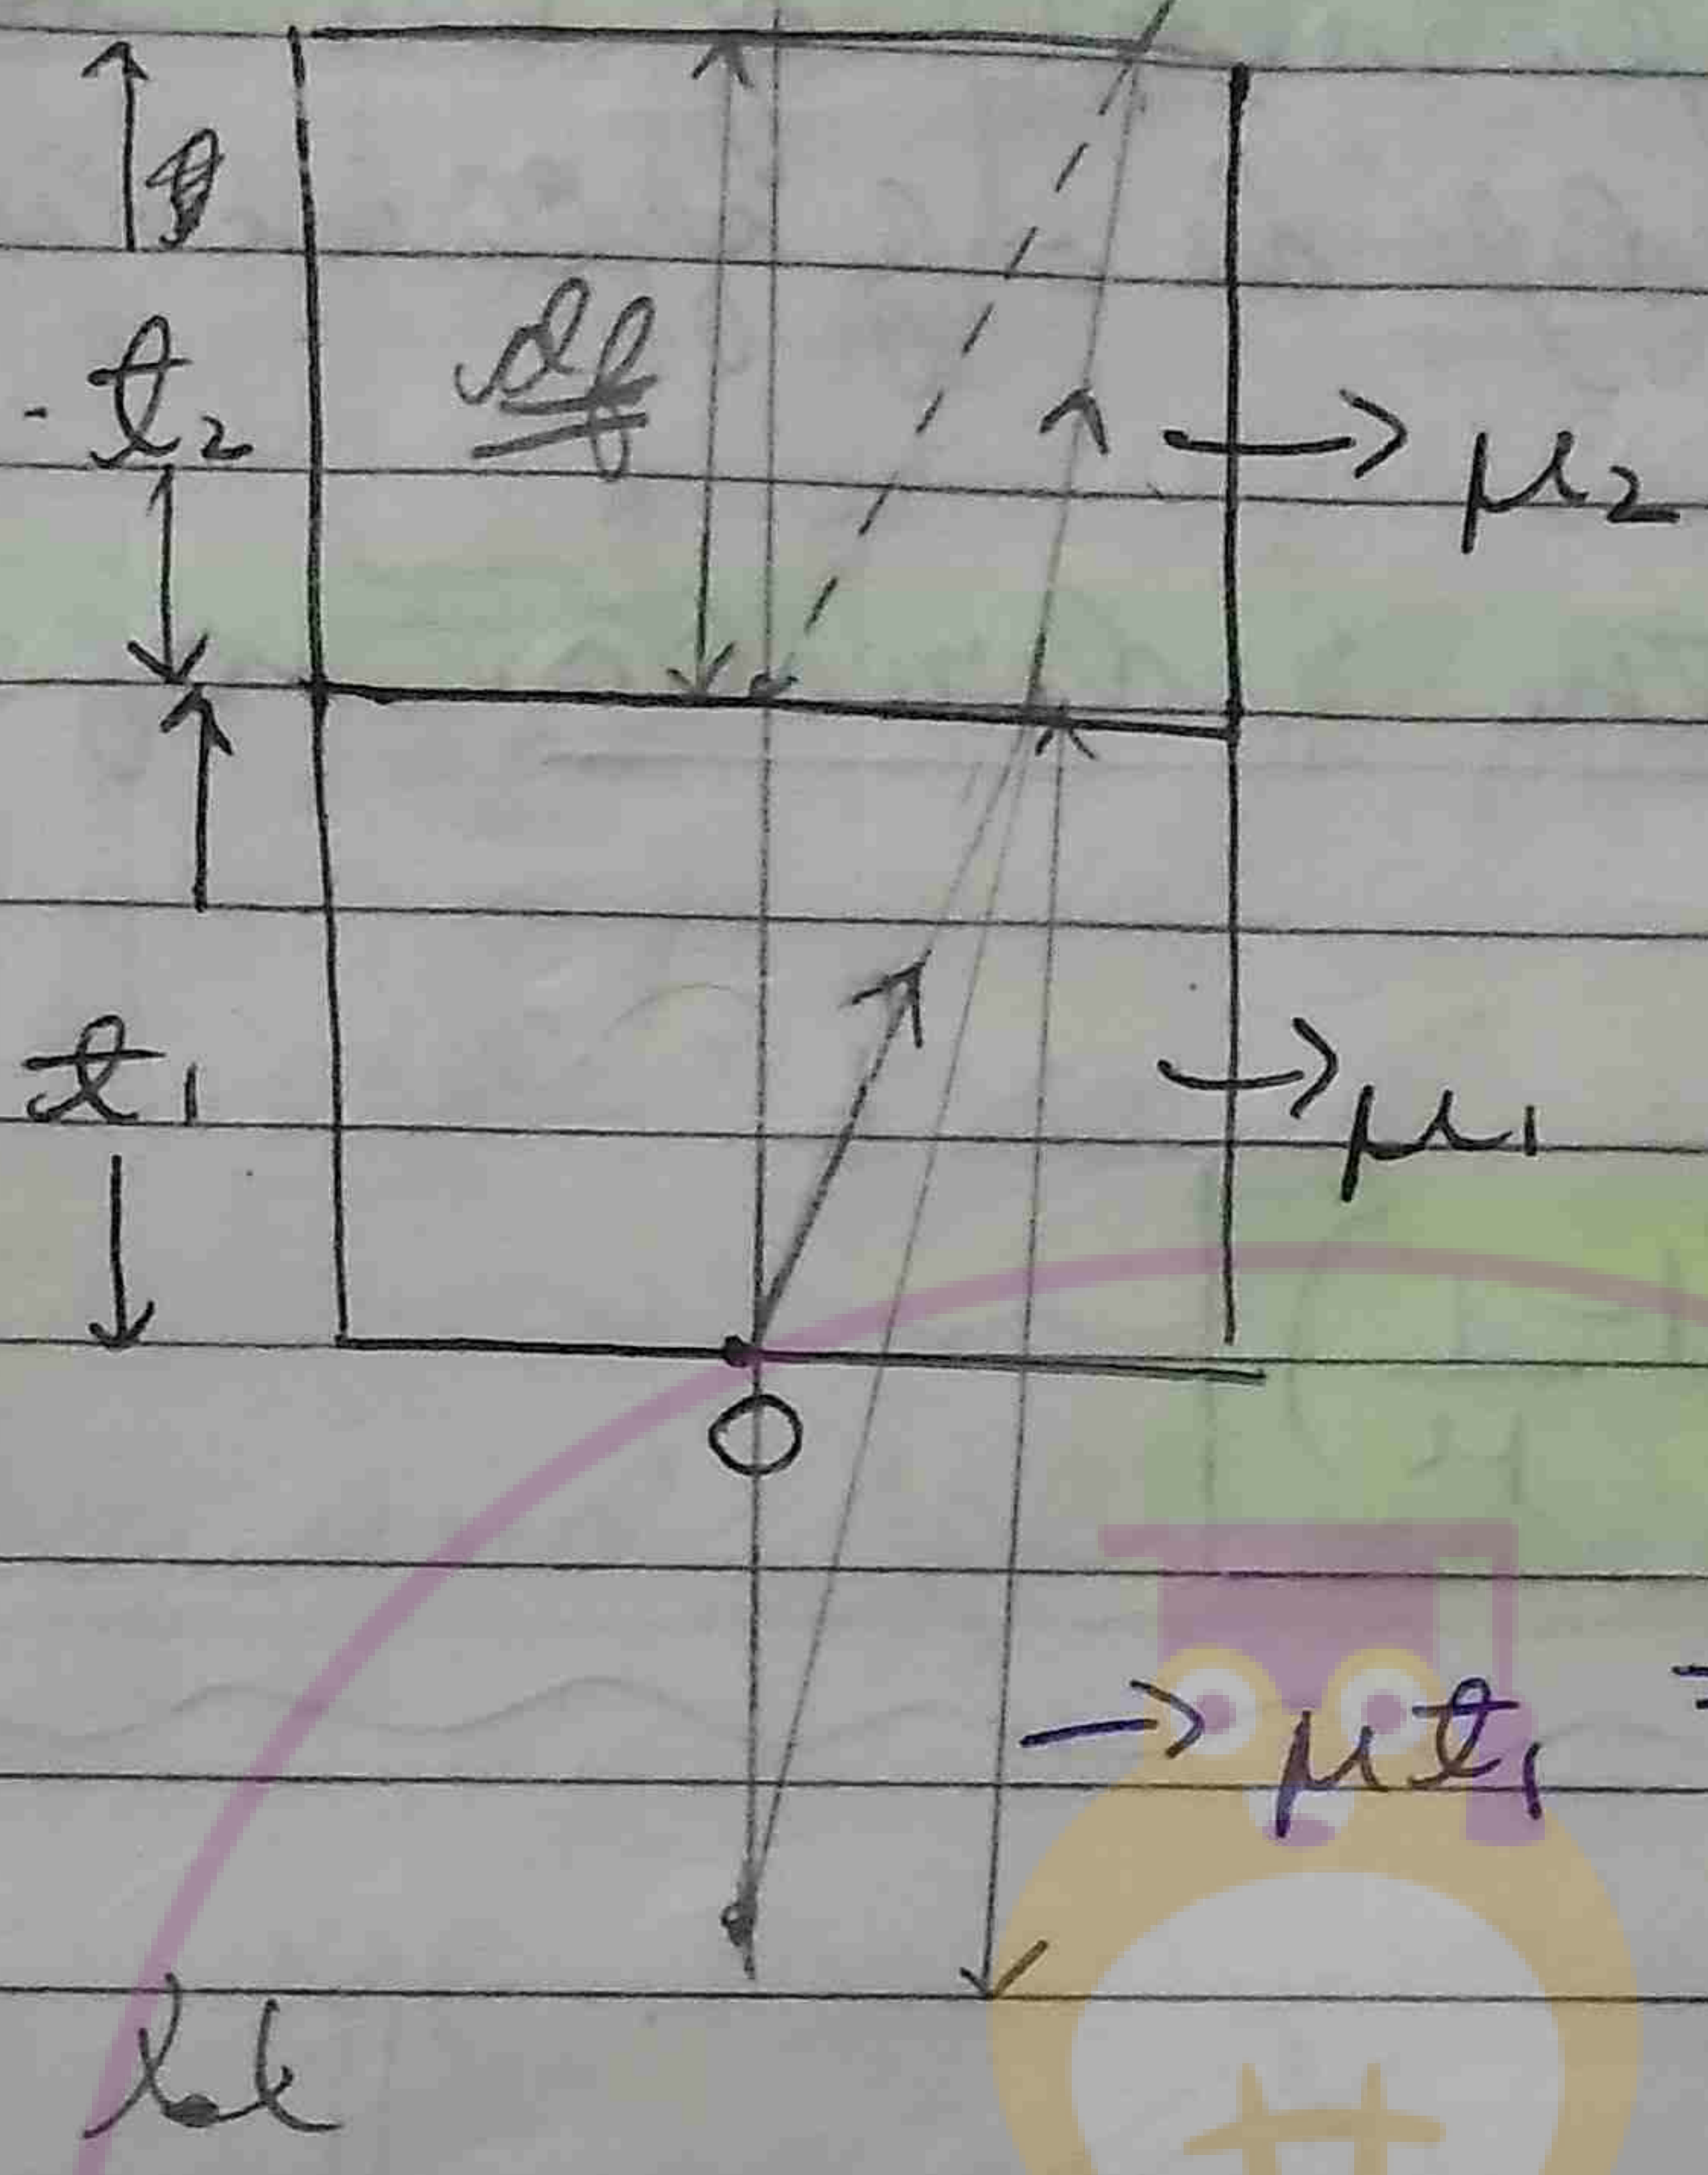 t₂
→ μ₂
t₁
→ μ₁
O
→ μt₁